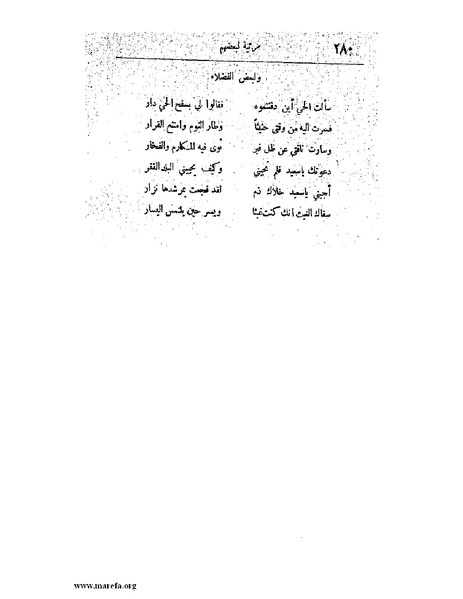 ٢٨٠ مرثية لبعضهم
ولبعض الفضلاء
سألت الحي أين دفنتموه فقالوا لي بسفح الحي دار
فسرت اليه من وقتي حثيثاً وطار النوم وامتنع القرار
وسارت ناقتي عن ظل قبر ثوى فيه المكارم والفخار
دعوتك ياسعيد فلم تجبني وكيف يجيبني البلد القفر
أجبني ياسعيد خلاك ذم لقد فجعت بمرشدها نزار
سقاك الغيث انك كنت غيثا ويسر حين يلتمس اليسار
www.marefa.org